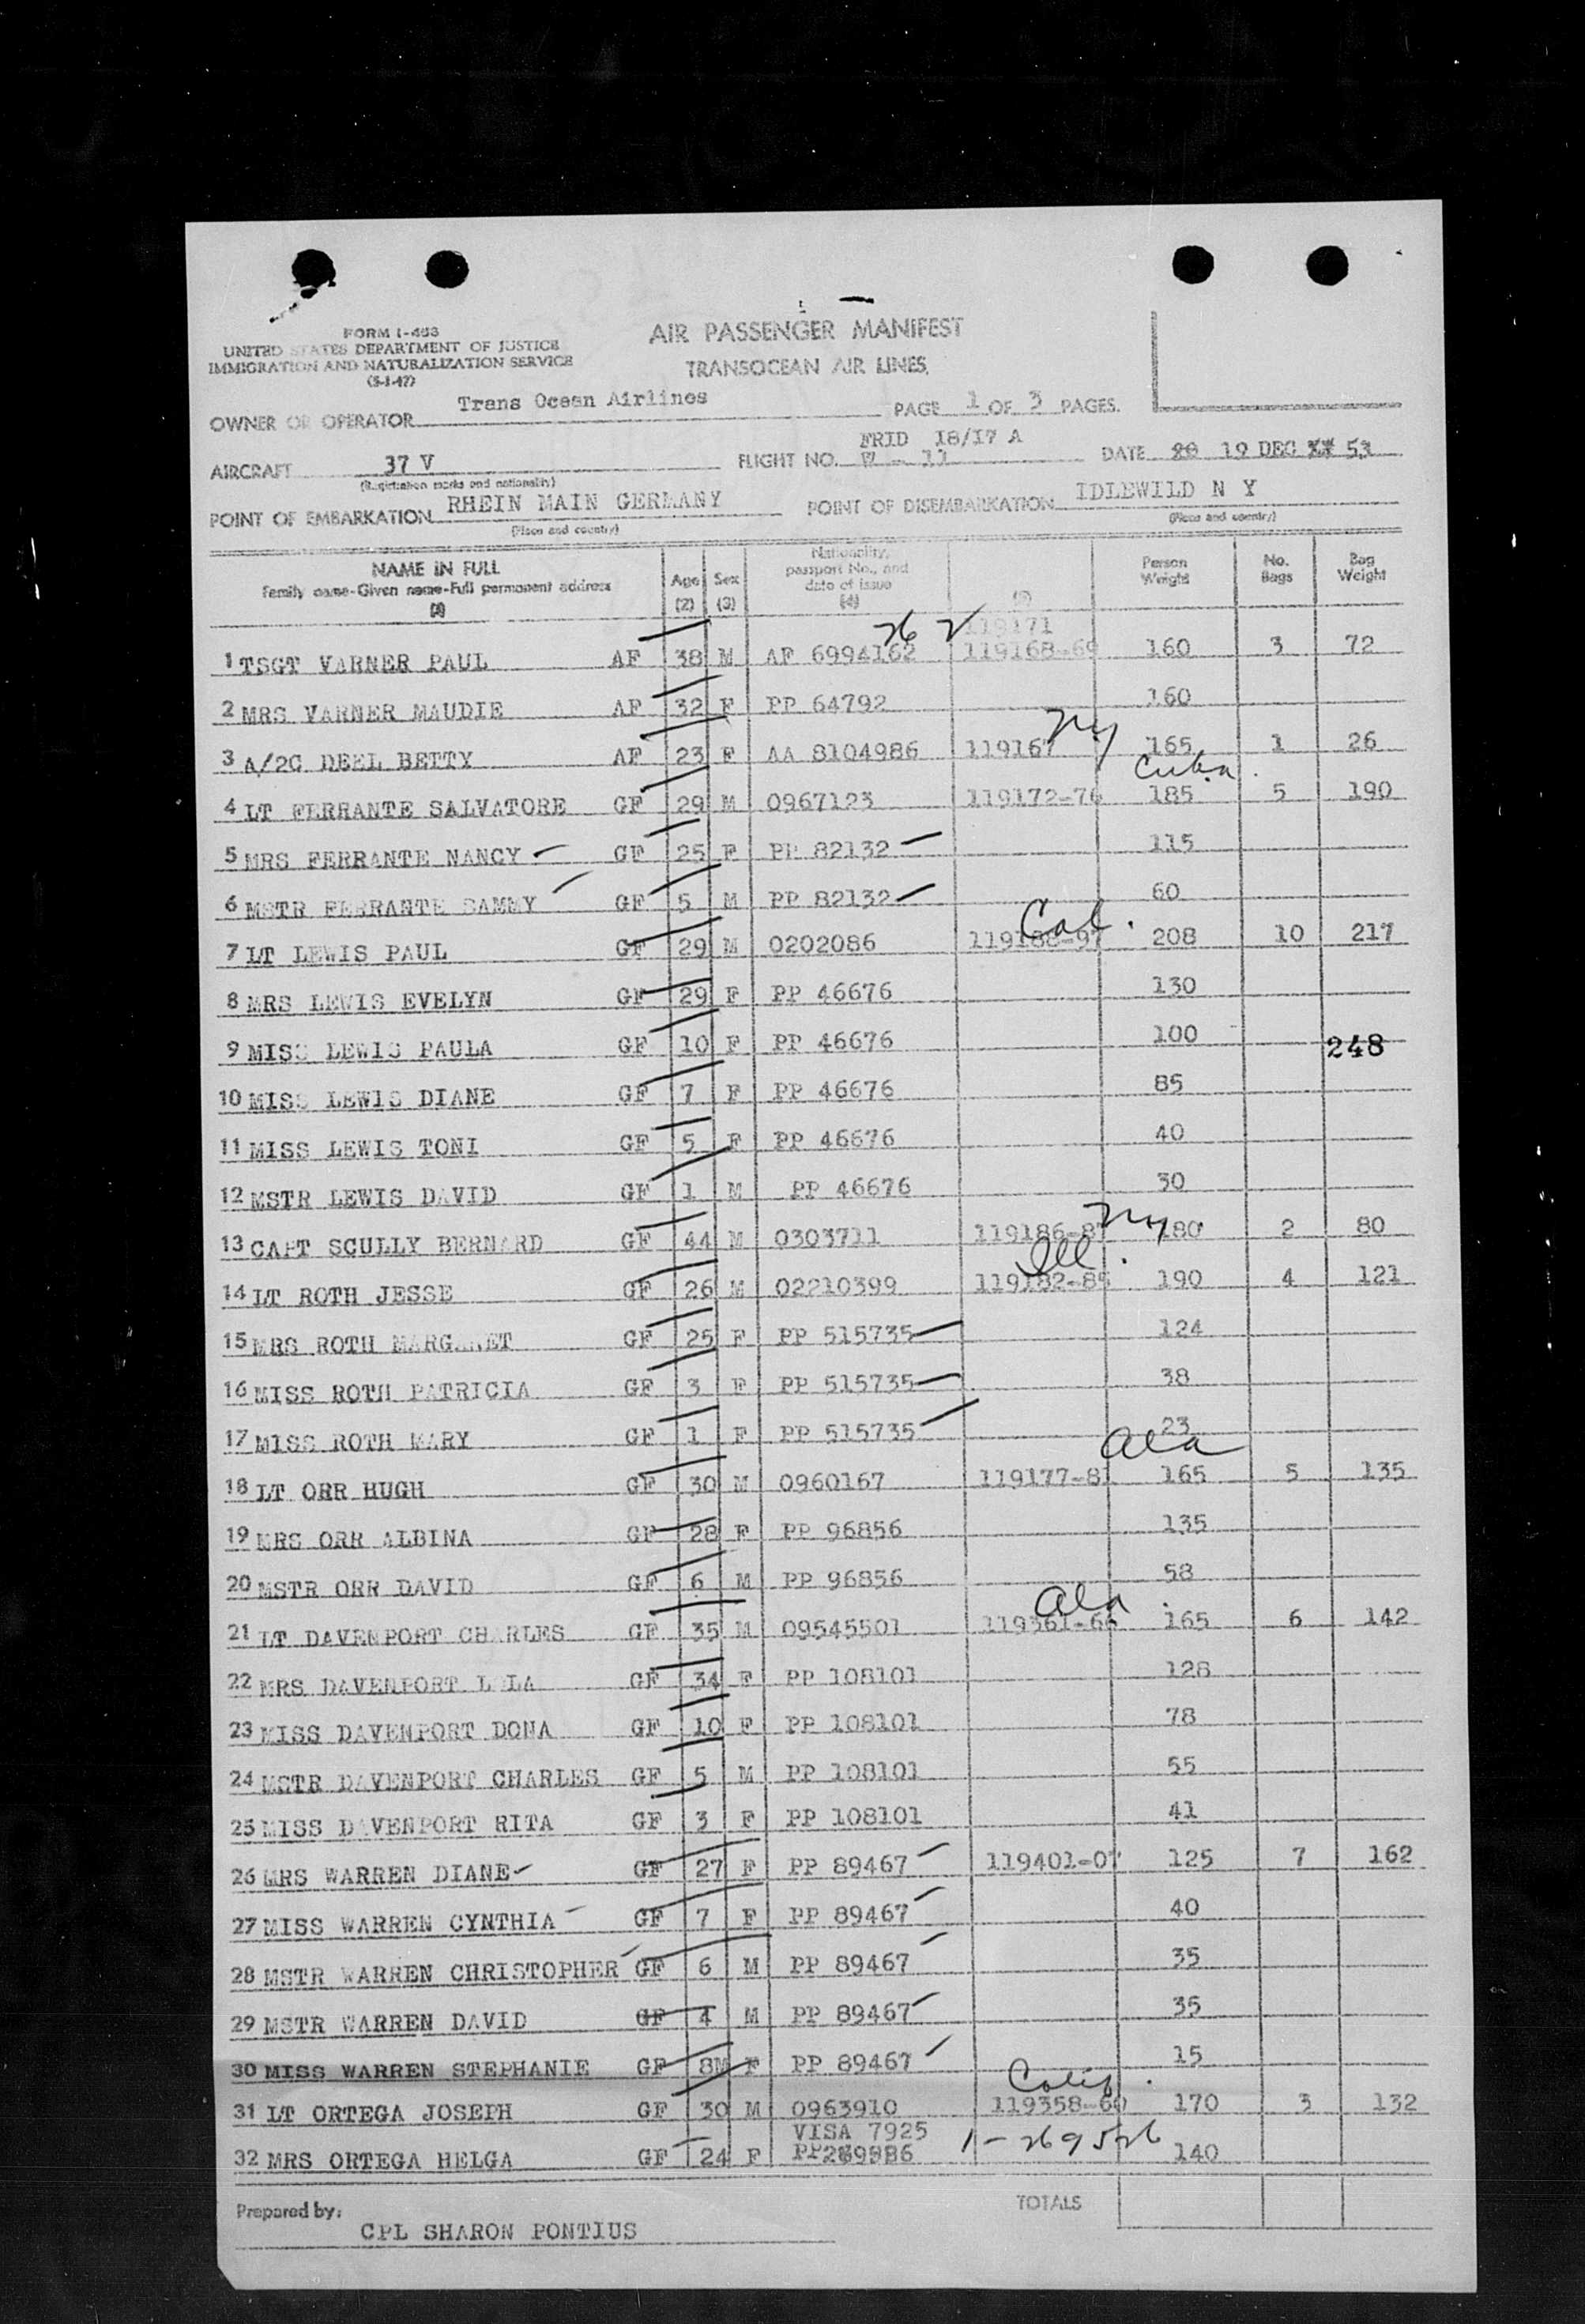 FORM I-483
UNITED STATES DEPARTMENT OF JUSTICE
IMMIGRATION AND NATURALIZATION SERVICE
(5-1-47)
AIR PASSENGER MANIFEST
TRANSOCEAN AIR LINES.
OWNER OR OPERATOR Trans Ocean Airlines PAGE 1 OF 3 PAGES.
FRID 18/17 A
AIRCRAFT 37 V FLIGHT NO. - 11 DATE 19 DEC 53
(Registration marks and nationality)
POINT OF EMBARKATION RHEIN MAIN GERMANY POINT OF DISEMBARKATION IDLEWILD N Y
(Place and country) (Place and country)
NAME IN FULL
Family name-Given name-Full permanent address
Age (2) Sex (3) Nationality, passport No., and date of issue (4) Person Weight No. Bags Bag Weight
119171
1 TSGT VARNER PAUL AF 38 M AF 6994162 119168-69 160 3 72
2 MRS VARNER MAUDIE AF 32 F PP 64792 160
NY
3 A/2C DEEL BETTY AF 23 F AA 8104986 119167 165 1 26
Cuba
4 LT FERRANTE SALVATORE GF 29 M 0967123 119172-76 185 5 190
5 MRS FERRANTE NANCY GF 25 F PP 82132 115
6 MSTR FERRANTE SAMMY GF 5 M PP 82132 60
Cal.
7 LT LEWIS PAUL GF 29 M 0202086 119188-97 208 10 217
8 MRS LEWIS EVELYN GF 29 F PP 46676 130
9 MISS LEWIS PAULA GF 10 F PP 46676 100 248
10 MISS LEWIS DIANE GF 7 F PP 46676 85
11 MISS LEWIS TONI GF 5 F PP 46676 40
12 MSTR LEWIS DAVID GF 1 M PP 46676 30
NY
13 CAPT SCULLY BERNARD GF 44 M 0303711 119186-87 180 2 80
Ill.
14 LT ROTH JESSE GF 26 M 02210399 119182-85 190 4 121
15 MRS ROTH MARGARET GF 25 F PP 515735 124
16 MISS ROTH PATRICIA GF 3 F PP 515735 38
17 MISS ROTH MARY GF 1 F PP 515735 23
Ala
18 LT ORR HUGH GF 30 M 0960167 119177-81 165 5 135
19 MRS ORR ALBINA GF 28 F PP 96856 135
20 MSTR ORR DAVID GF 6 M PP 96856 58
Ala.
21 LT DAVENPORT CHARLES GF 35 M 09545501 119361-66 165 6 142
22 MRS DAVENPORT GF 34 F PP 108101 128
23 MISS DAVENPORT DONA GF 10 F PP 108101 78
24 MSTR DAVENPORT CHARLES GF 5 M PP 108101 55
25 MISS DAVENPORT RITA GF 3 F PP 108101 41
26 MRS WARREN DIANE GF 27 F PP 89467 119401-07 125 7 162
27 MISS WARREN CYNTHIA GF 7 F PP 89467 40
28 MSTR WARREN CHRISTOPHER GF 6 M PP 89467 35
29 MSTR WARREN DAVID GF 4 M PP 89467 35
30 MISS WARREN STEPHANIE GF 8M F PP 89467 15
Calif.
31 LT ORTEGA JOSEPH GF 30 M 0963910 119358-60 170 3 132
VISA 7925
32 MRS ORTEGA HELGA GF 24 F 1-269526 140
Prepared by: TOTALS
CPL SHARON PONTIUS